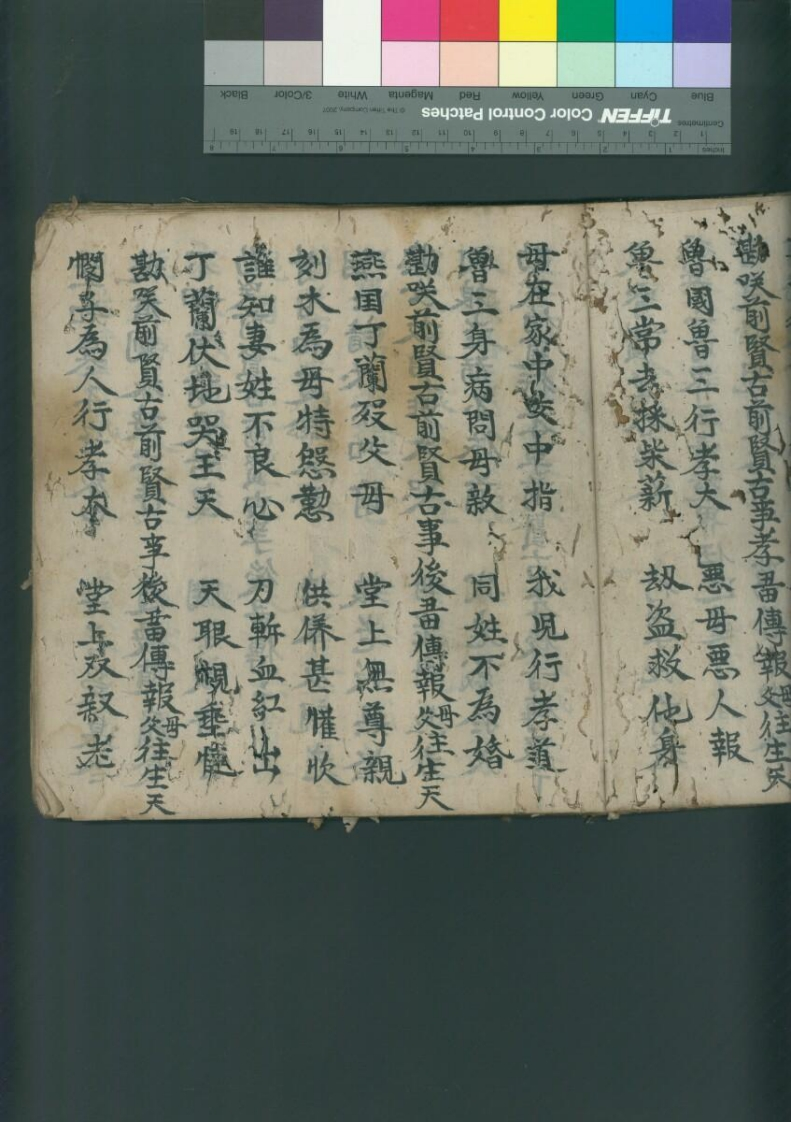 勸咲前賢古前賢古事孝畨傳報父母往生天
魯國曽三行孝大 惡母惡人報
魯三常去採柴薪 劫盗救他身
母在家中咬中指 我児行孝道
曽三身病問母敘 同姓不為婚
勸咲前賢古前賢古事後畨傳報父母往生天
燕国丁蘭殁父母 堂上無尊親
刻木為母特怨懃 供俻甚懽忺
誰知妻姓不良心 刀斬血紅出
丁蘭伏地哭王天 天眼覩垂
勸咲前賢古前賢古事後畨傳報父母往生天
憫子為人行孝 堂上双親老
Blue Cyan Green Yellow Red Magenta White 3/Color Black
Centimetres TIFFEN Color Control Patches © The Tiffen Company, 2007
Inches